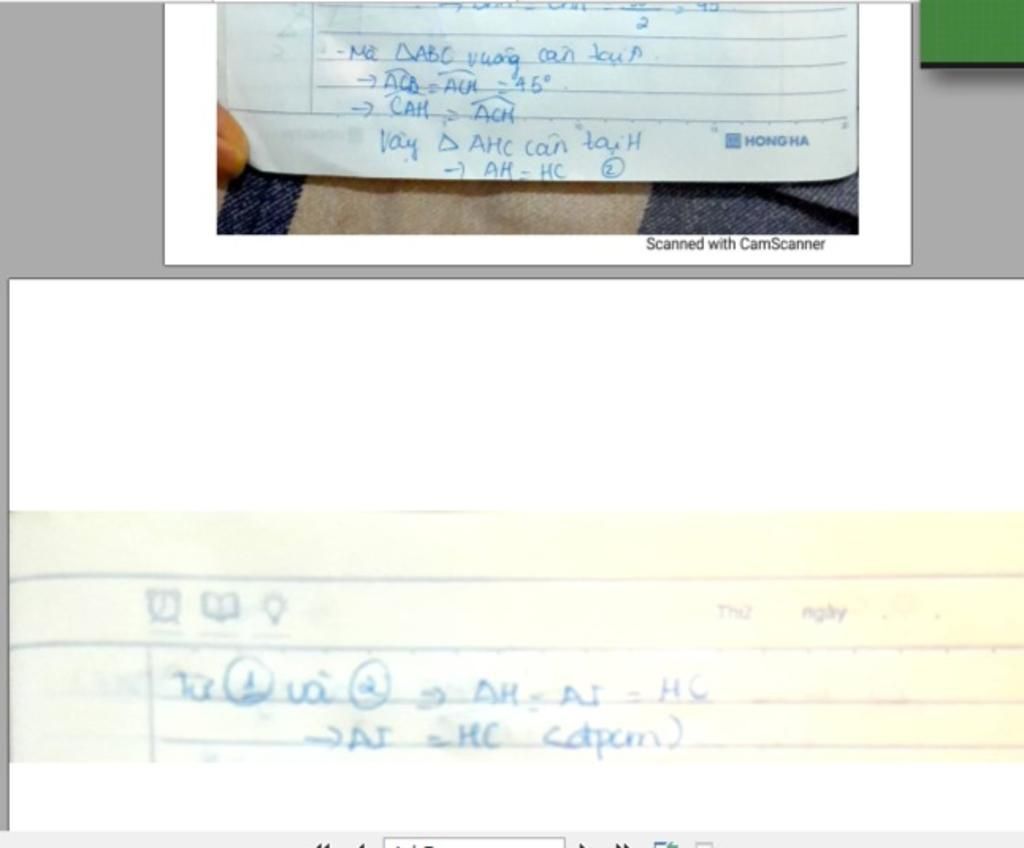 - Mà ΔABC vuông cân tại A
→ ACB = ACH = 45°
→ CAH = ACH
Vậy Δ AHC cân tại H
HONG HA
→ AH = HC ②
Scanned with CamScanner
Thứ ngày
Từ ① và ② → AH = AI = HC
→ AI = HC (đpcm)